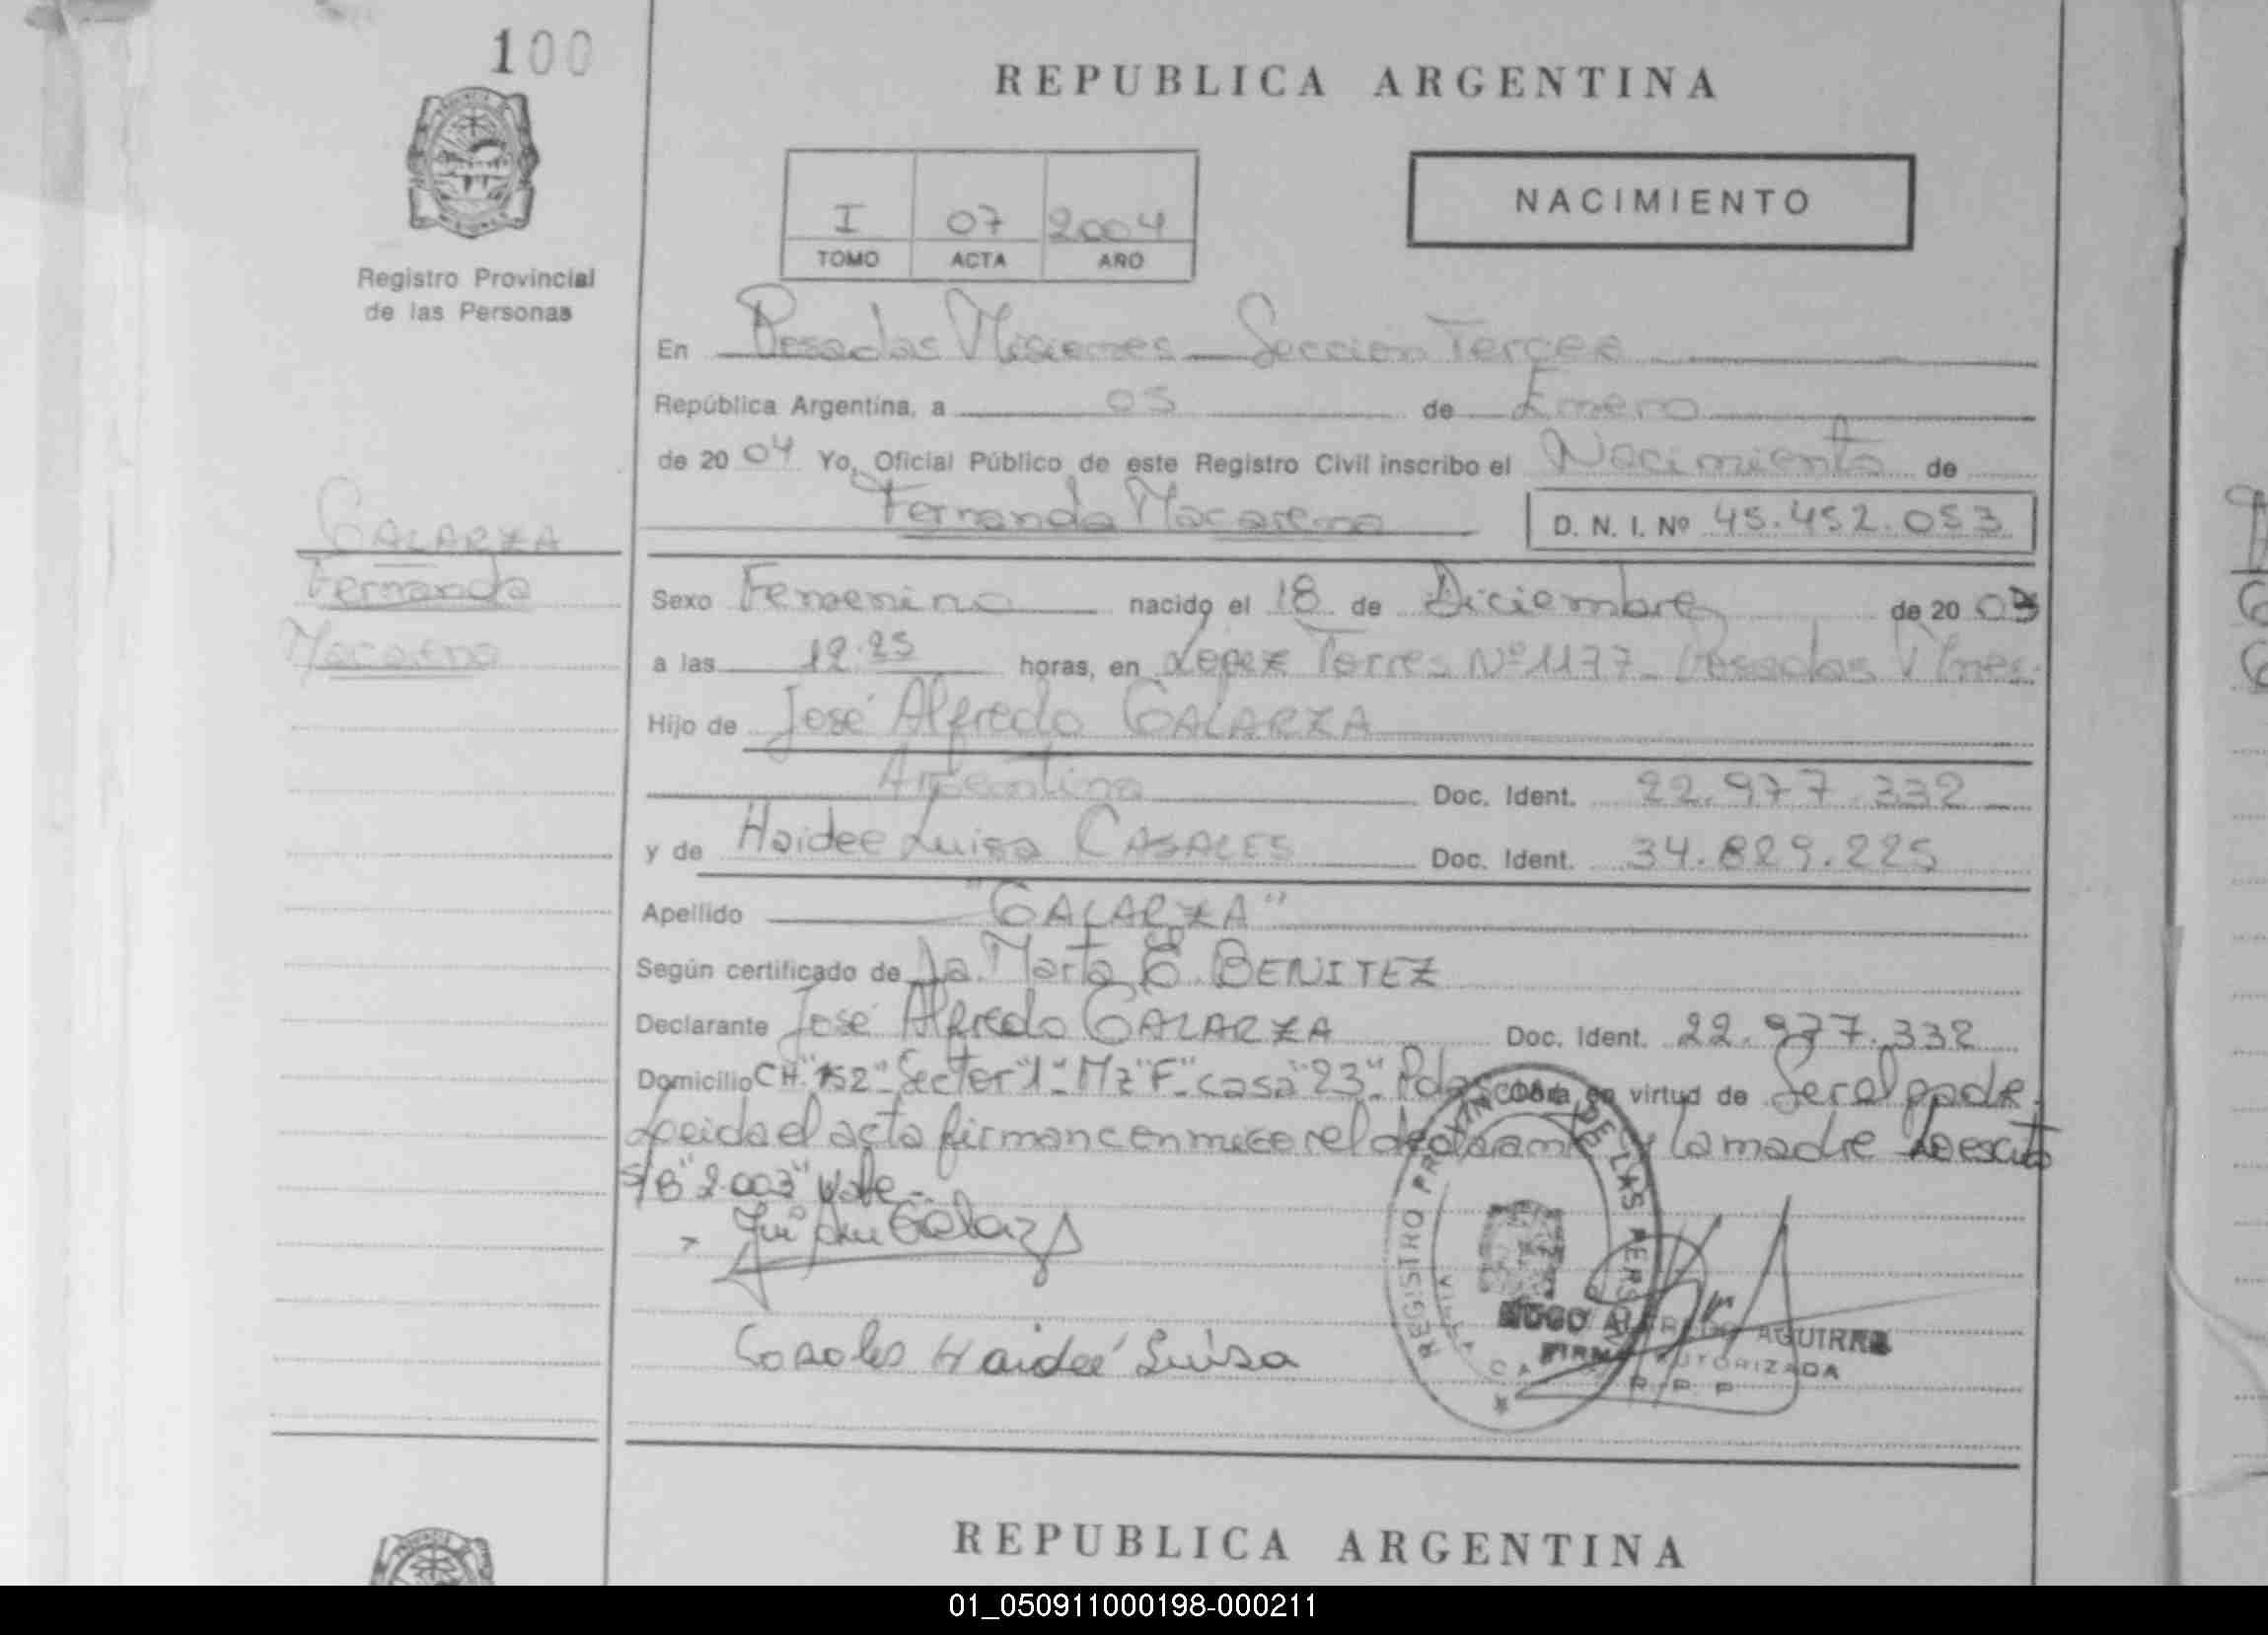 100
REPUBLICA ARGENTINA
NACIMIENTO
I 07 2004
TOMO ACTA AÑO
Registro Provincial
de las Personas
En Posadas Misiones Seccion Tercera
República Argentina, a 05 de Enero
de 20 04 Yo, Oficial Público de este Registro Civil inscribo el Nacimiento de
Fernanda Macarena D. N. I. Nº 45.452.053
GALARZA
Fernanda
Macarena
Sexo Femenino nacido el 18 de Diciembre de 20 03
a las 12.25 horas, en Lopez Torres Nº 1177 - Posadas Mnes.
Hijo de José Alfredo GALARZA
Argentina Doc. Ident. 22.977.332
y de Haidee Luisa CASALES Doc. Ident. 34.829.225
Apellido "GALARZA"
Según certificado de Marta E. BENITEZ
Declarante José Alfredo GALARZA Doc. Ident. 22.977.332
Domicilio CH "152" Sector "1" Mz "F" casa "23" Pdas Obra en virtud de Ser el padre.
Leida el acta firman conmigo el declarante y la madre
S/B "2.003" Vale.-
Galarza
Casales Haideé Luisa
REGISTRO PROVINCIAL DE LAS PERSONAS
HUGO ALFREDO AGUIRRE
FIRMA AUTORIZADA
R. P. P.
REPUBLICA ARGENTINA
01_050911000198-000211